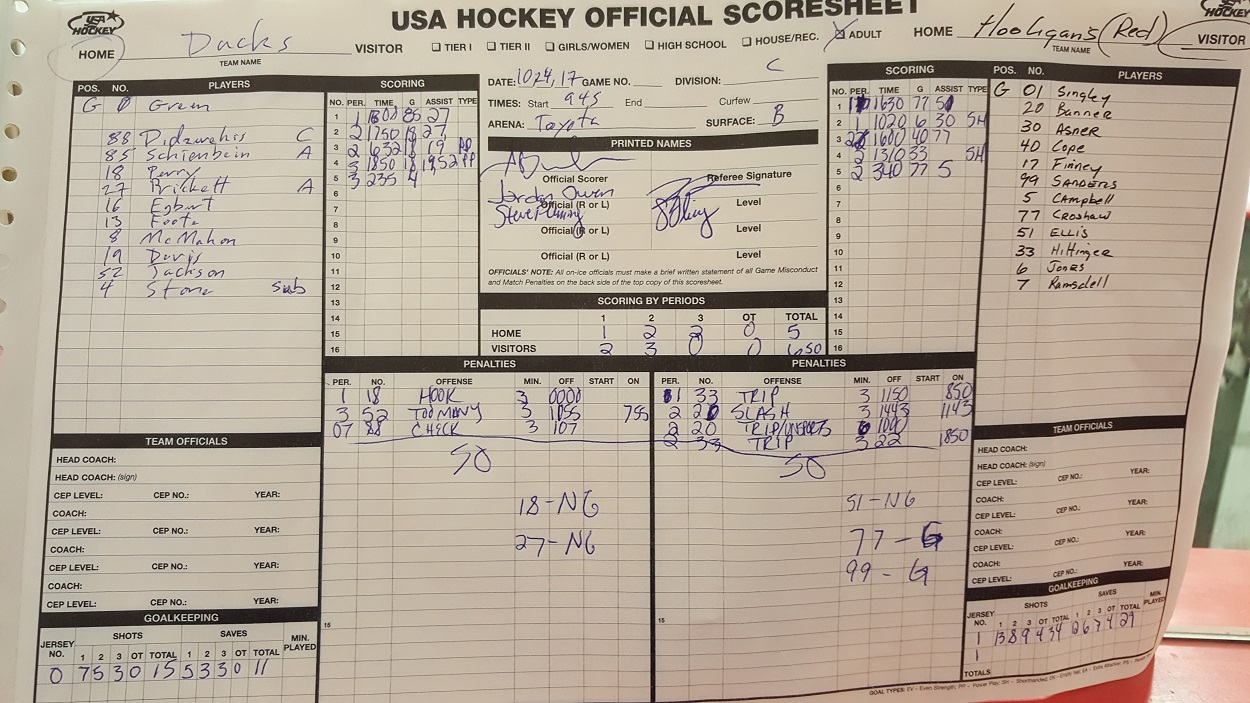 USA HOCKEY
USA HOCKEY OFFICIAL SCORESHEET
USA HOCKEY
HOME Ducks VISITOR
TEAM NAME
TIER I TIER II GIRLS/WOMEN HIGH SCHOOL HOUSE/REC. ADULT
HOME Hooligans (Red) VISITOR
TEAM NAME
POS. NO. PLAYERS
G 0 Green
88 C
85 Schienbein A
18 Perry
27 Prickett A
16 Egbert
13 Foote
8 McMahon
19 Davis
52 Jackson
4 Stone sub
SCORING
NO. PER. TIME G ASSIST TYPE
1 1 1300 85 27
2 2 1750 18 27
3 2 632 18 19 PP
4 3 1850 18 19,52 PP
5 3 235 4
6
7
8
9
10
11
12
13
14
15
16
DATE: 10 24, 17 GAME NO. DIVISION: C
TIMES: Start 945 End Curfew
ARENA: Toyota SURFACE: B
PRINTED NAMES
Official Scorer Referee Signature
Jordan Owen
Official (R or L) Level
Official (R or L) Level
Official (R or L) Level
OFFICIALS' NOTE: All on-ice officials must make a brief written statement of all Game Misconduct
and Match Penalties on the back side of the top copy of this scoresheet.
SCORING BY PERIODS
1 2 3 OT TOTAL
HOME 1 2 2 0 5
VISITORS 2 3 0 0 6 SO
SCORING
NO. PER. TIME G ASSIST TYPE
1 1 1630 77 5
2 1 1020 6 30 SH
3 2 1600 40 77
4 2 1310 33 SH
5 2 340 77 5
6
7
8
9
10
11
12
13
14
15
16
POS. NO. PLAYERS
G 01 Singley
20 Banner
30 Asner
40 Cope
17 Finney
99 SANDERS
5 Campbell
77 Croshaw
51 ELLIS
33 Hittinger
6 Jones
7 Ramsdell
PENALTIES
PER. NO. OFFENSE MIN. OFF START ON
1 18 HOOK 3 0000
3 52 TOO MANY 3 1055 755
OT 88 CHECK 3 107
SO
18-NG
27-NG
15
PENALTIES
PER. NO. OFFENSE MIN. OFF START ON
1 33 TRIP 3 1150 850
2 20 SLASH 3 1443 1143
2 20 TRIP/UNSPORTS 6 1000
2 33 TRIP 3 22 1850
SO
51-NG
77-G
99-G
15
TEAM OFFICIALS
HEAD COACH:
HEAD COACH: (sign)
CEP LEVEL: CEP NO.: YEAR:
COACH:
CEP LEVEL: CEP NO.: YEAR:
COACH:
CEP LEVEL: CEP NO.: YEAR:
COACH:
CEP LEVEL: CEP NO.: YEAR:
GOALKEEPING
JERSEY NO. SHOTS SAVES MIN. PLAYED
1 2 3 OT TOTAL 1 2 3 OT TOTAL
0 7 5 3 0 15 5 3 3 0 11
TEAM OFFICIALS
HEAD COACH:
HEAD COACH: (sign)
CEP LEVEL: CEP NO.: YEAR:
COACH:
CEP LEVEL: CEP NO.: YEAR:
COACH:
CEP LEVEL: CEP NO.: YEAR:
COACH:
CEP LEVEL: CEP NO.: YEAR:
GOALKEEPING
JERSEY NO. SHOTS SAVES MIN. PLAYED
1 2 3 OT TOTAL 1 2 3 OT TOTAL
1 13 8 9 4 34 12 6 7 4 29
1
TOTALS
GOAL TYPES: EV - Even Strength; PP - Power Play; SH - Shorthanded; EN - Empty Net; EA - Extra Attacker; PS - Penalty